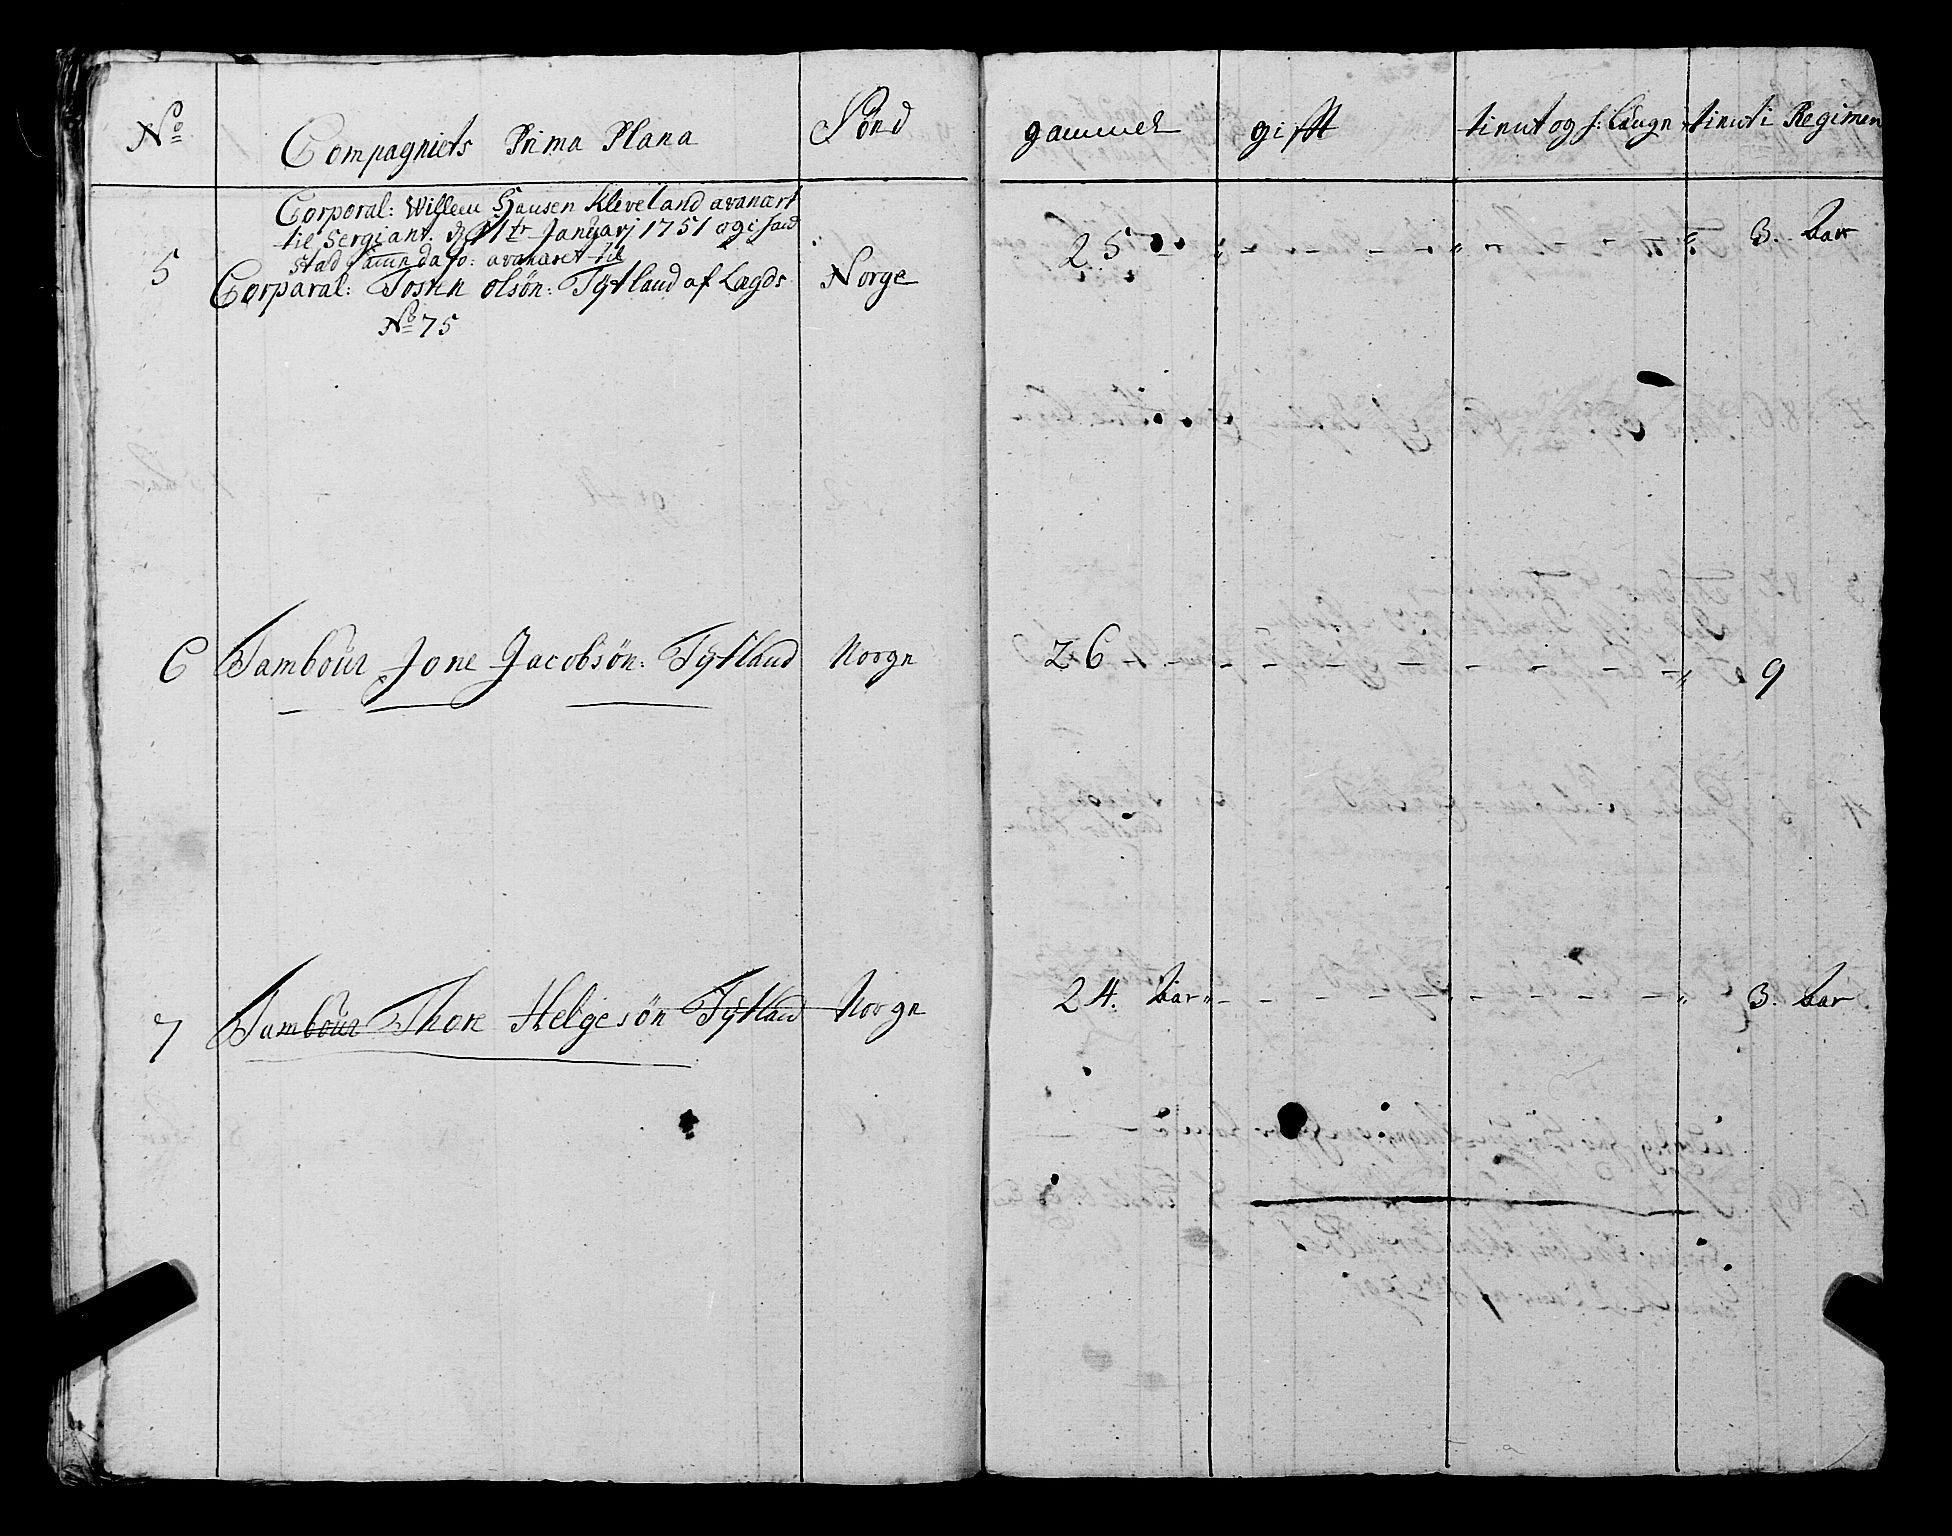 No
Compagniets Prima Plana
Född
gammel
gifft
tient og h: Laugn
tient i Regimen
5
Corporal: Willem Hansen Kleveland avancert
til Sergiant. d 11tr Januarj 1751 og i hans
stad samme dato: avanceret til
Corparal: Tosten olsön: Tÿtland af Lægds
No 75
Norge
25
3. aar
6
Tambour Jone Jacobsön: Tÿtland
Norge
26
9
7
Tambour Thore Helgesön Tÿtland
Norge
24. aar
3. aar